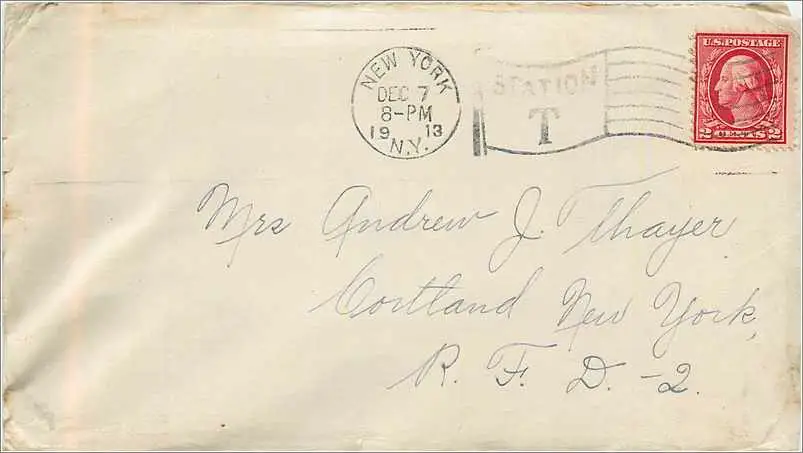 NEW YORK
DEC 7
8-PM
19 13
N.Y.
STATION
T
U.S. POSTAGE
2 CENTS 2
Mrs Andrew J. Thayer
Cortland New York,
R. F. D. -2.